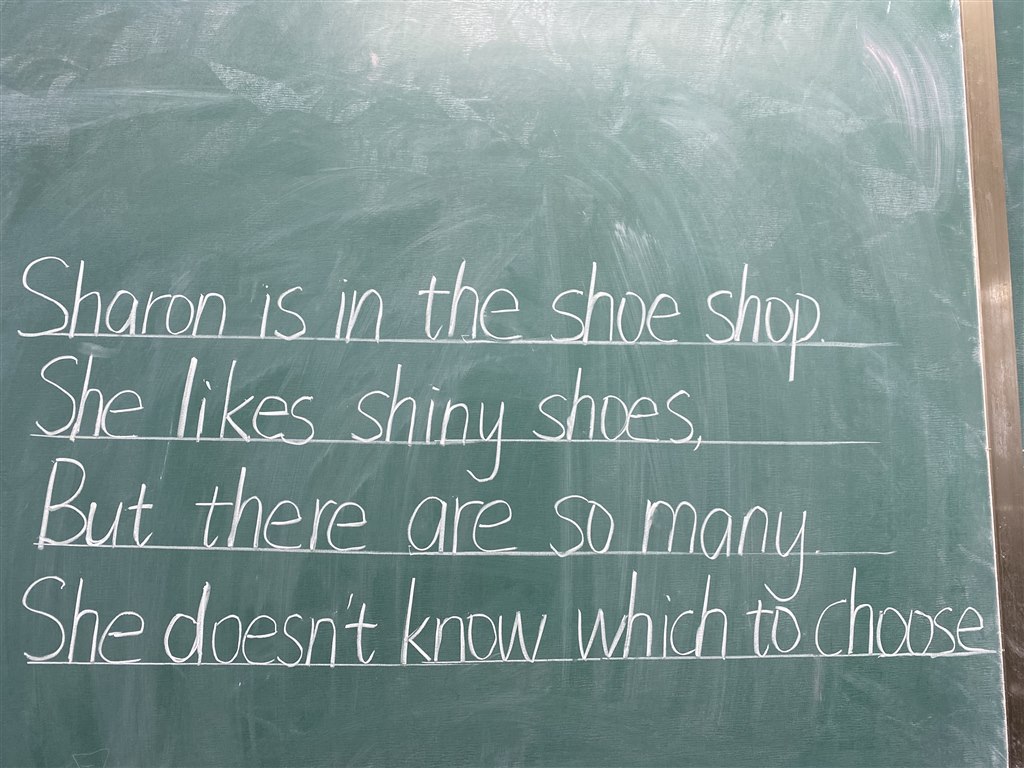 Sharon is in the shoe shop.
She likes shiny shoes,
But there are so many.
She doesn't know which to choose